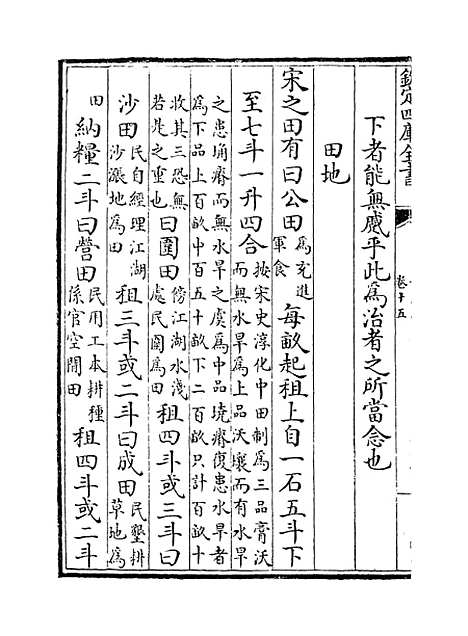 欽定四庫全書
卷十五
下者能無感乎此為治者之所當念也
田地
宋之田有曰公田為充進軍食每畝起租上自一石五斗下
至七斗一升四合按宋史淳化中田制為三品膏沃而無水旱為上品沃壤而有水旱
之患埆瘠而無水旱之虞為中品境瘠復患水旱者為下品上百畝中百五十畝下二百畝只計百畝十
收其三恐無若是之重也曰圍田傍江湖水淺處民圍為田租四斗或三斗曰
沙田民自經理江湖沙漲地為田租三斗或二斗曰成田民墾耕草地為
田納糧二斗曰營田民用工本耕種係官空閒田租四斗或二斗